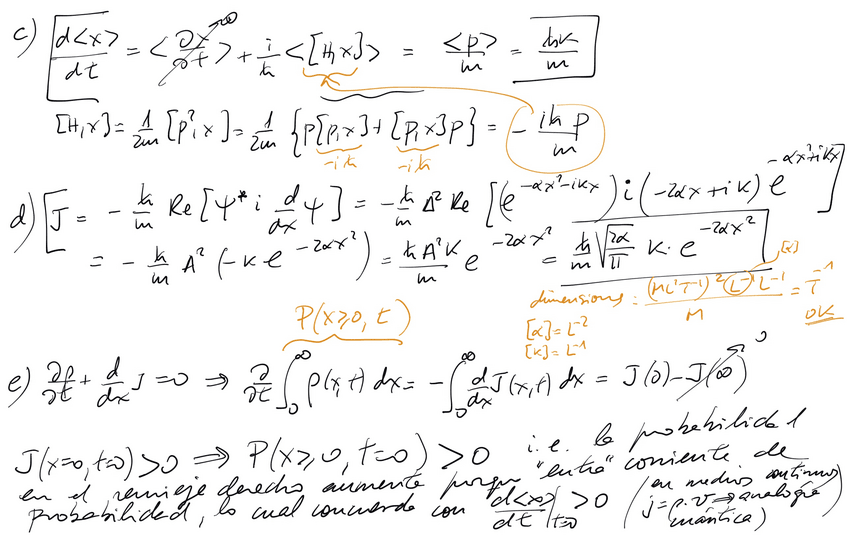 c) d<x>/dt = <∂x/∂t>→0 + i/ħ <[H,x]> = <p>/m = ħk/m
[H,x] = 1/2m [p², x] = 1/2m {p[p,x] + [p,x]p} = - iħ p/m
-iħ -iħ
d) J = - ħ/m Re[ψ* i d/dx ψ] = - ħ/m A² Re [(e^{-αx²-ikx}) i (-2αx + ik) e^{-αx²+ikx}]
= - ħ/m A² (-k e^{-2αx²}) = ħA²k/m e^{-2αx²} = ħ/m √(2α/π) k · e^{-2αx²}
dimensions: (ML²T⁻¹) (L⁻¹) L⁻¹ / M = T⁻¹
[α]
[α] = L⁻² OK
[k] = L⁻¹
P(x≥0, t)
e) ∂ρ/∂t + d/dx J = 0 ⇒ ∂/∂t ∫₀^∞ ρ(x,t) dx = - ∫₀^∞ d/dx J(x,t) dx = J(0) - J(∞)→0
J(x=0, t=0) > 0 ⇒ P(x≥0, t=0) > 0 i.e. la probabilidad
en el semieje derecho aumenta porque "entra" corriente de
probabilidad, lo cual concuerda con d<x>/dt|t=0 > 0 (en medios continuos
j = ρ·v ⇒ analogía
cuántica)